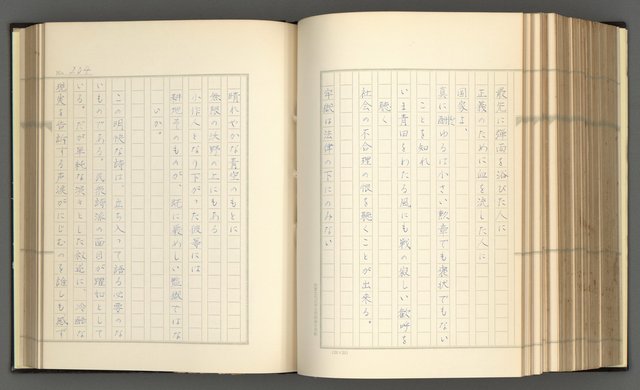 最先に弾雨を浴びた人に
正義のために血を流した人に
国家よ、
真に酬ゆるは小さい勲章でも褒状でもない
ことを知れ
いま青田をわたる風にも戦の寂しい歓呼を
聴く
社会の不合理の恨を聴くことが出来る。
牢獄は法律の下にのみない
No. 204
晴れやかな青空のもとに
無限の沃野の上にもある
小作人となり下がった彼等には
耕地そのものが、既に厳めしい監獄ではな
いか。
この明快な詩は、立ち入って語る必要のな
いものである。民衆詩派の面目が躍如として
いる。だが単純な淡々とした叙述に、冷酷な
現実を告訴する声涙がにじむのを誰しも感ず